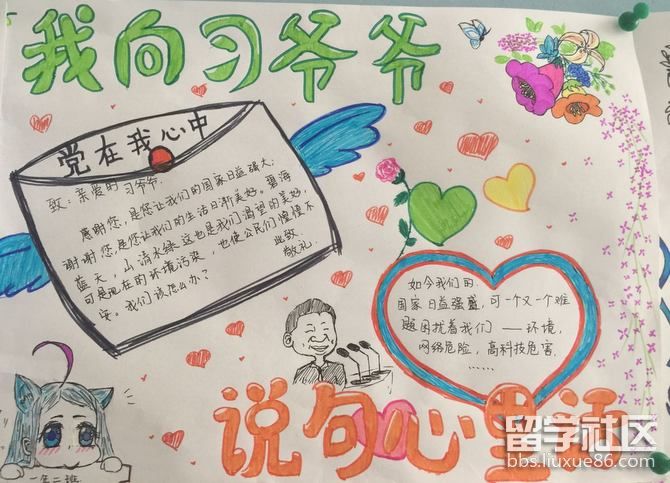 我向习爷爷
党在我心中
致：亲爱的习爷爷
感谢您，是您让我们的国家日益强大，
谢谢您，是您让我们的生活日渐美好。碧海
蓝天，山清水绿这也是我们渴望的美好，
可是现在的环境污染，也使公民们惶惶不
安。我们该怎么办？
此致
敬礼
如今我们的
国家日益强盛，可一个又一个难
题困扰着我们——环境，
网络危险，高科技危害
……
说句心里话
一年二班
留学社区
bbs.liuxue86.com